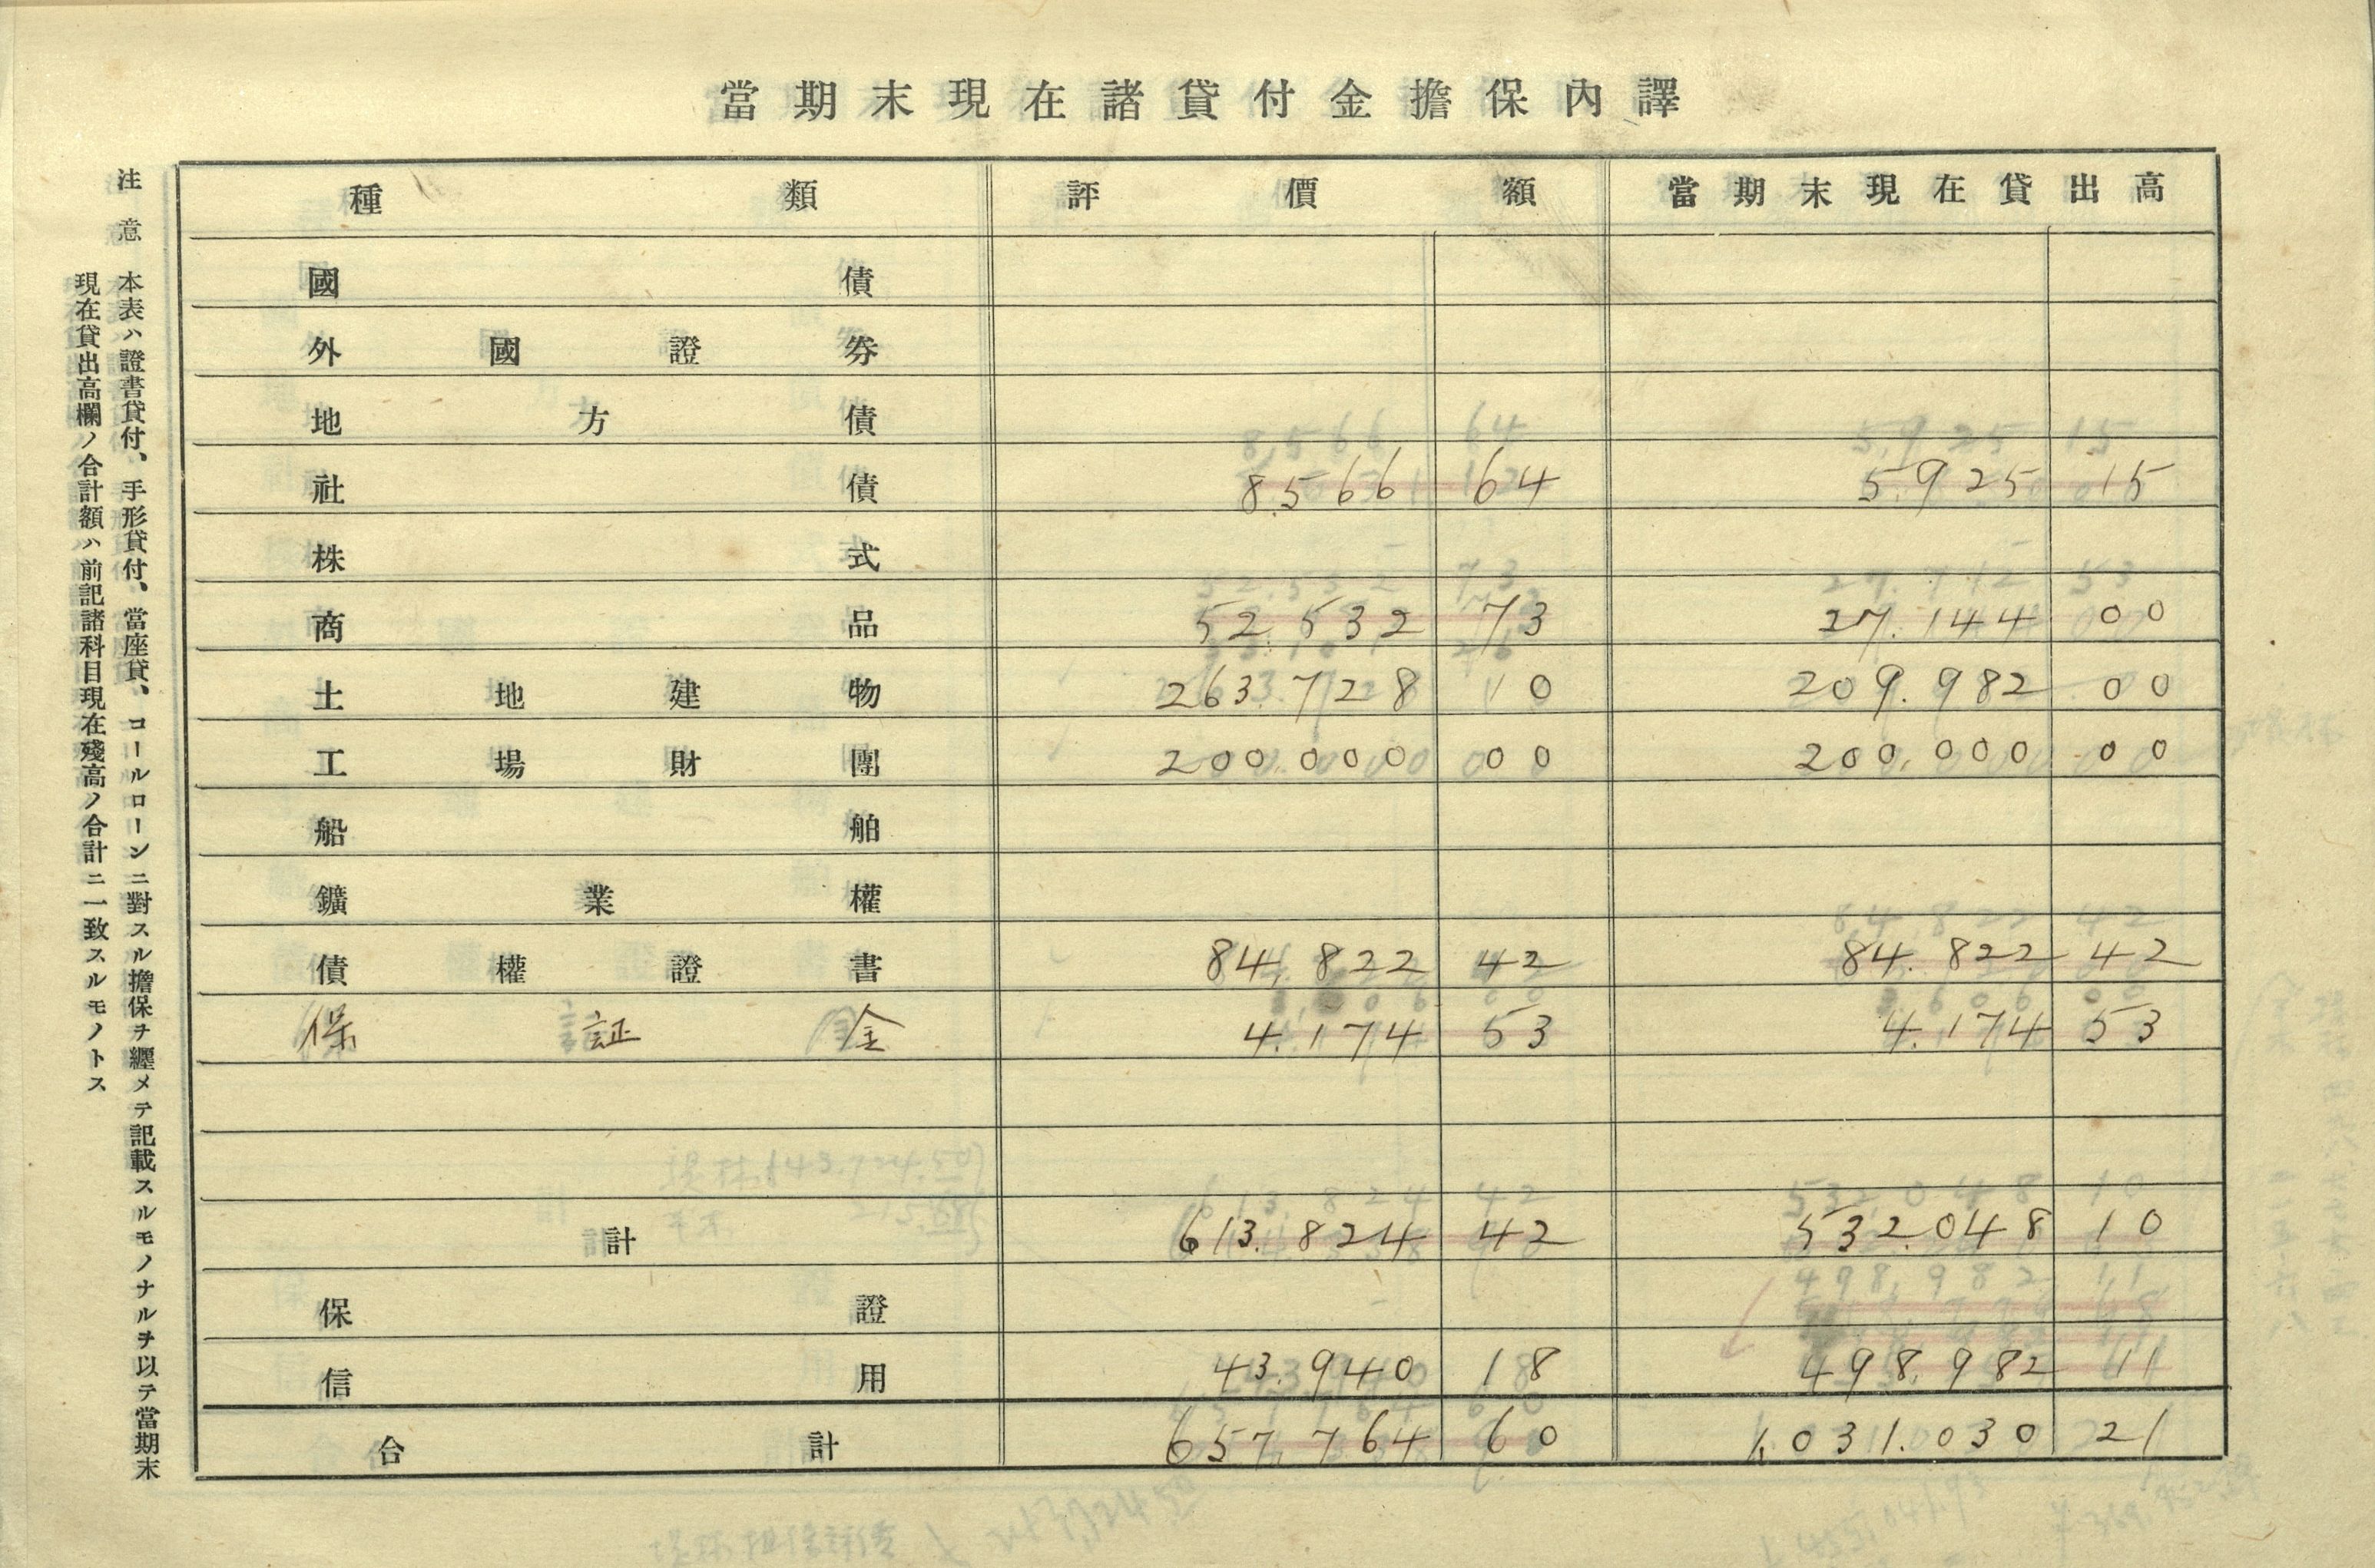 當期末現在諸貸付金擔保內譯
種類 評價額 當期末現在貸出高
國債
外國證券
地方債
社債 8.566 64 5.925 15
株式
商品 52.532 73 27.144 00
土地建物 263.728 10 209.982 00
工場財團 200.000 00 200.000 00
船舶
鑛業權
債權證書 84.822 42 84.822 42
保証金 4.174 53 4.174 53
計 613.824 42 532.048 10
保證
信用 43.940 18 498.982 11
合計 657.764 60 1,031.030 21
注意 本表ハ證書貸付、手形貸付、當座貸、コールローンニ對スル擔保ヲ纒メテ記載スルモノナルヲ以テ當期末
現在貸出高欄ノ合計額ハ前記諸科目現在殘高ノ合計ニ一致スルモノトス